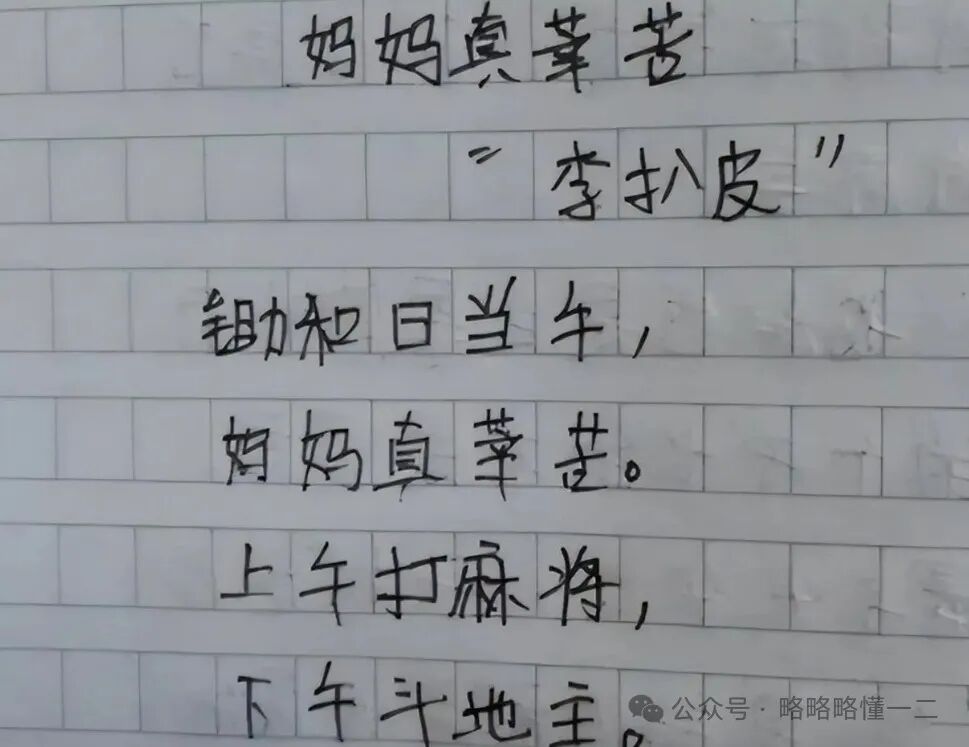 妈妈真莘苦
"李扒皮"
锄和日当午，
妈妈真莘苦。
上午打麻将，
下午斗地主。
公众号·略略略懂一二